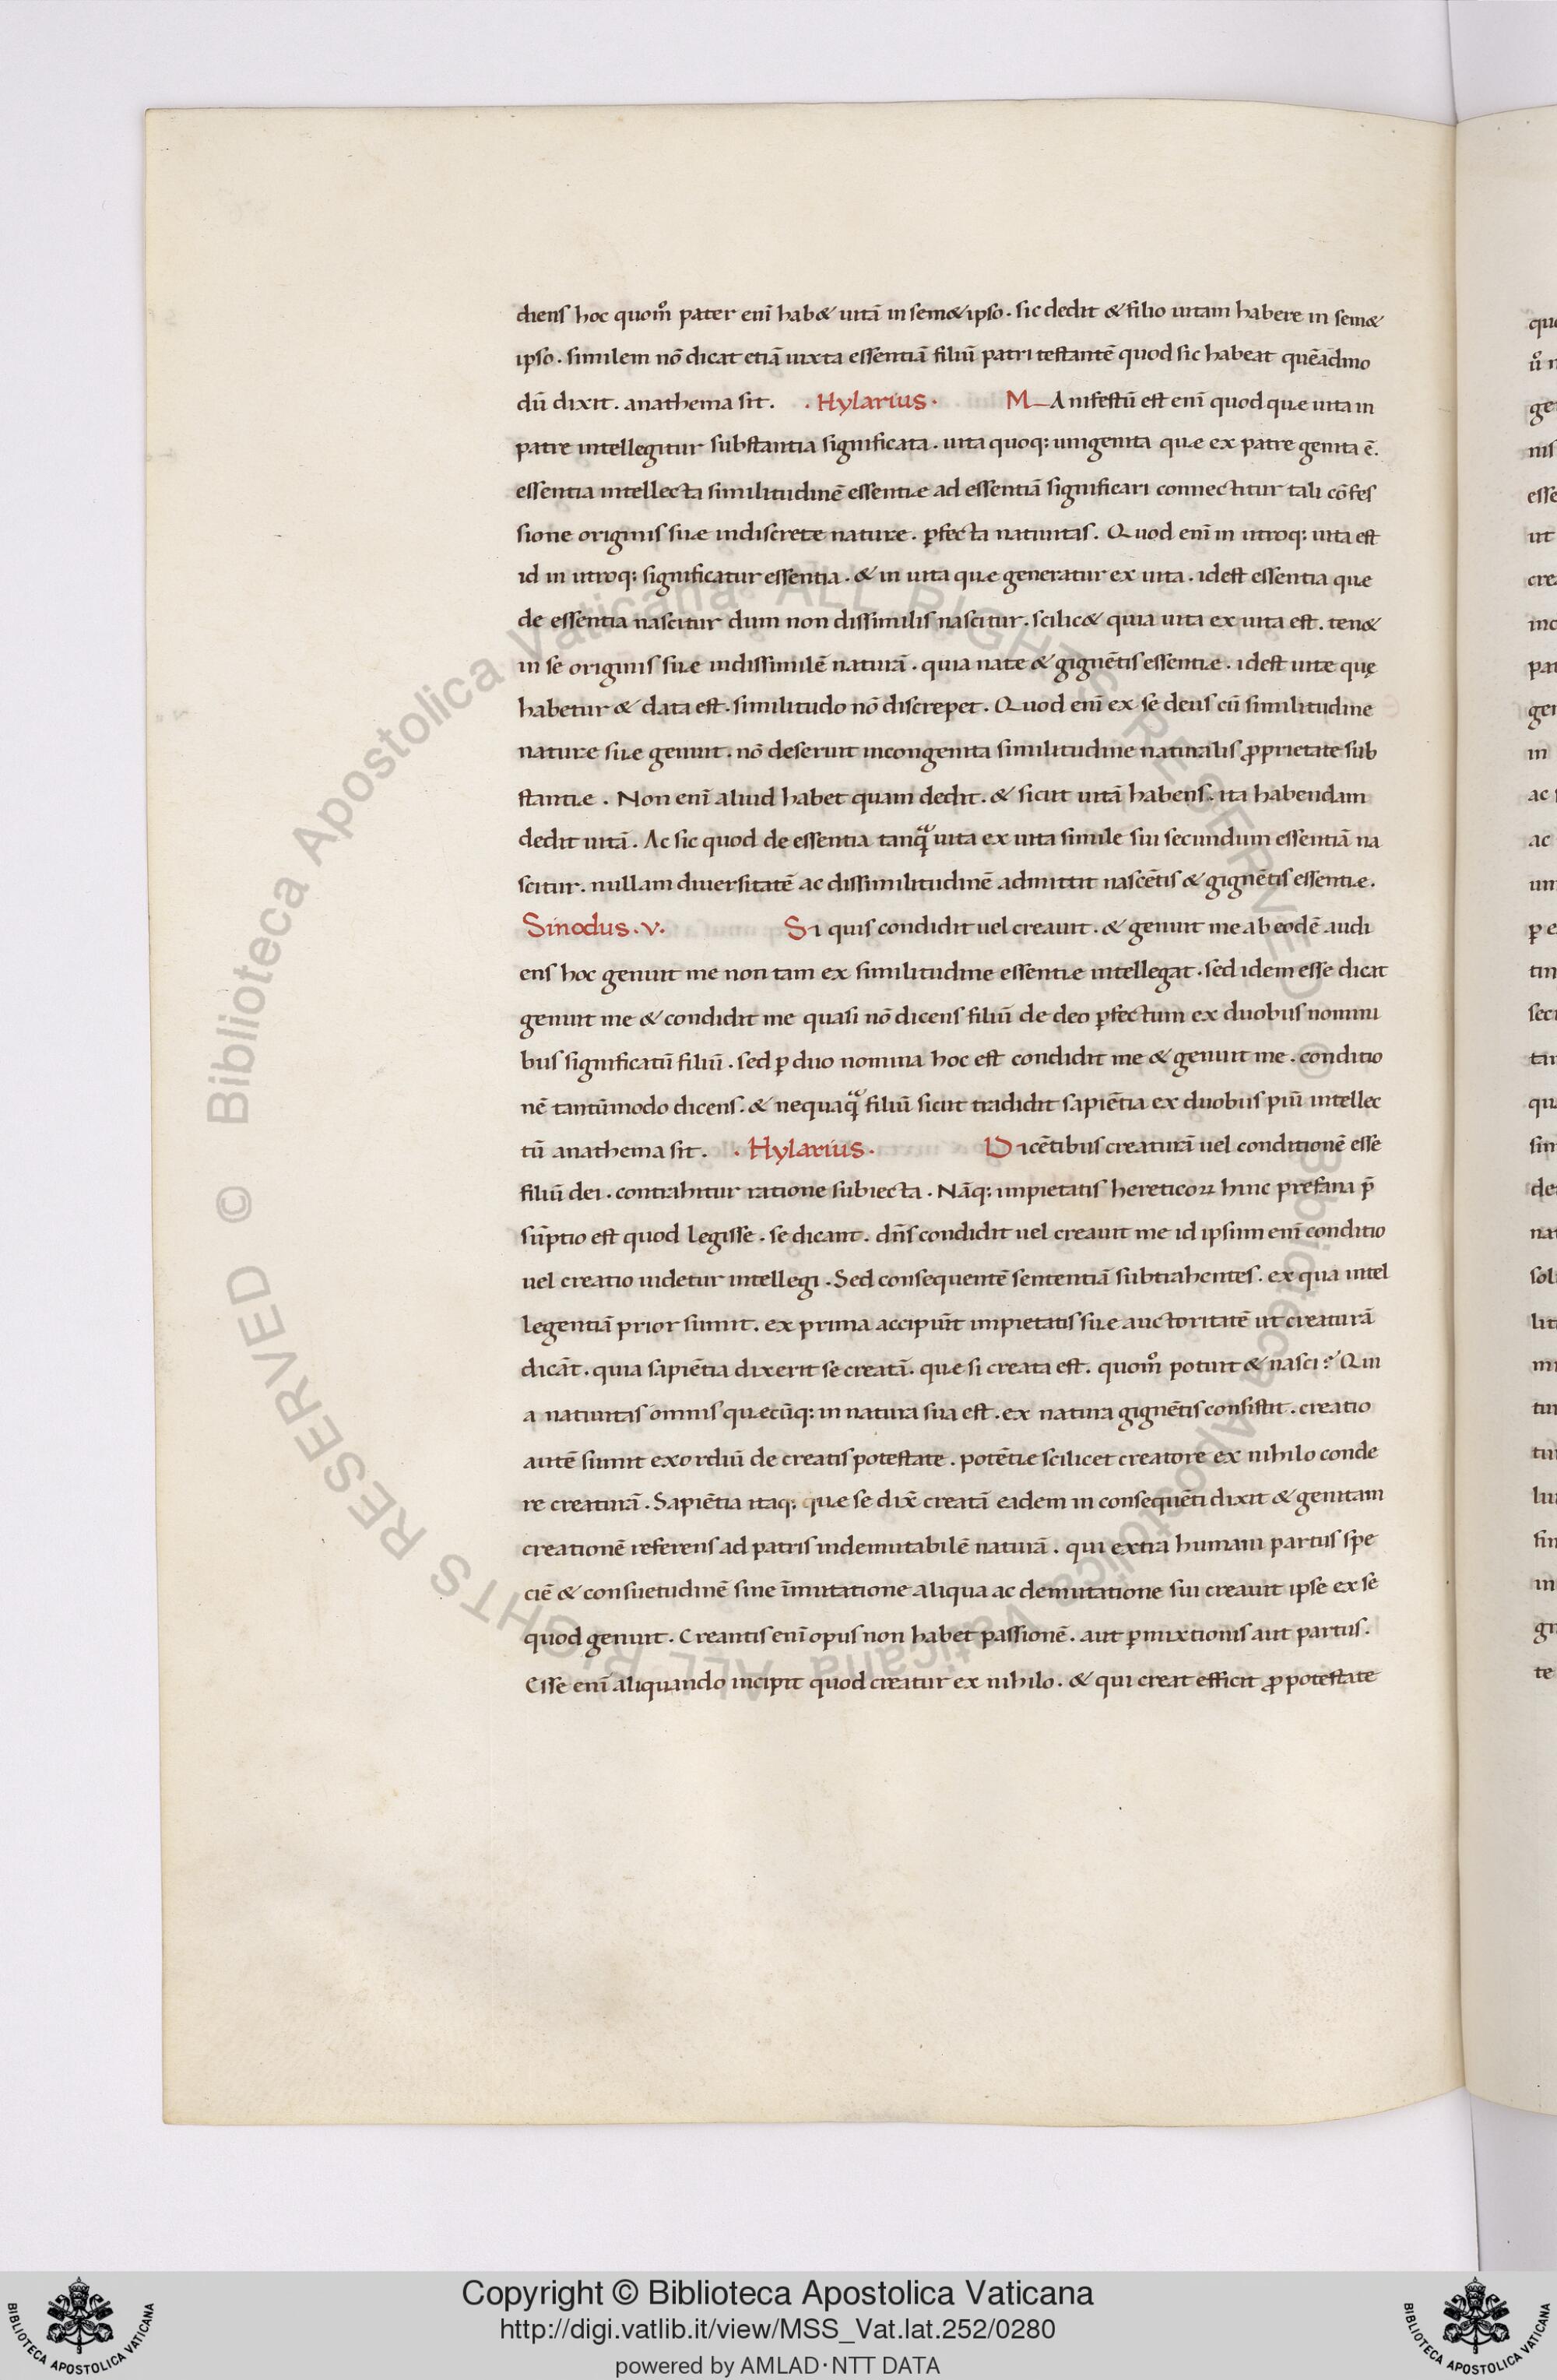 diens hoc quom̊ pater enī hab& uitā in sem&ipso. sic dedit & filio uitam habere in sem&
ipso. similem nō dicat etiā iuxta essentiā filiū patri testantē quod sic habeat quēadmo
dū dixit. anathema sit. . Hylarius. MAnifestū est enī quod quæ uita in
patre intellegitur substantia significata. uita quoq: unigenita quæ ex patre genita ē.
essentia intellecta similitudinē essentiæ ad essentiā significari connectitur tali cōfes
sione originis suæ indiscretæ naturæ. ꝑfecta natiuitas. Quod enī in utroq: uita est
id in utroq: significatur essentia. & in uita quæ generatur ex uita. idest essentia que
de essentia nascitur dum non dissimilis nascitur. scilic& quia uita ex uita est. ten&
in se originis suæ indissimilē naturā. quia natæ & gignētis essentiæ. idest uitæ quę
habetur & data est. similitudo nō discrepet. Quod enī ex se deus cū similitudine
naturæ suæ genuit. nō deseruit incongenita similitudine naturalis ꝓprietate sub
stantiæ. Non enī aliud habet quam dedit. & sicut uitā habens. ita habendam
dedit uitā. Ac sic quod de essentia tanqᷓ uita ex uita simile sui secundum essentiā na
scitur. nullam diuersitatē ac dissimilitudinē admittit nascētis & gignētis essentiæ.
Sinodus.v. Si quis condidit uel creauit. & genuit me ab eodē audi
ens hoc genuit me non tam ex similitudine essentiæ intellegat. sed idem esse dicat
genuit me & condidit me quasi nō dicens filiū de deo ꝑfectum ex duobus nomini
bus significatū filiū. sed ꝑ duo nomina hoc est condidit me & genuit me. conditio
nē tantūmodo dicens. & nequaqᷓ filiū sicut tradidit sapiētia ex duobus piū intellec
tū anathema sit. . Hylarius. Dicētibus creaturā uel conditionē esse
filiū dei. contrahitur ratione subiecta. Nāq: impietatis hereticoꝝ hinc prefana p̄
sūptio est quod legisse. se dicant. dn̄s condidit uel creauit me id ipsum enī conditio
uel creatio uidetur intellegi. Sed consequentē sententiā subtrahentes. ex qua intel
legentiā prior sumit. ex prima accipiūt impietatis suæ auctoritatē ut creaturā
dicāt. quia sapiētia dixerit se creatā. quæ si creata est. quom̊ potuit & nasci? Qui
a natiuitas omnis quæcūq: in natura sua est. ex natura gignētis consistit. creatio
autē sumit exordiū de creatis potestate. potētiæ scilicet creatore ex nihilo conde
re creaturā. Sapiētia itaq: quæ se dix̄ creatā eadem in consequēti dixit & genitam
creationē referens ad patris indemutabilē naturā. qui extra humani partus spe
ciē & consuetudinē sine īmutatione aliqua ac demutatione sui creauit ipse ex se
quod genuit. Creantis enī opus non habet passionē. aut ꝑmixtionis aut partus.
Esse enī aliquando incipit quod creatur ex nihilo. & qui creat efficit ꝓ potestate
© Biblioteca Apostolica Vaticana ALL RIGHTS RESERVED © Biblioteca Apostolica Vaticana ALL RIGHTS RESERVED
Copyright © Biblioteca Apostolica Vaticana
http://digi.vatlib.it/view/MSS_Vat.lat.252/0280
powered by AMLAD·NTT DATA
BIBLIOTECA APOSTOLICA VATICANA
BIBLIOTECA APOSTOLICA VATICANA